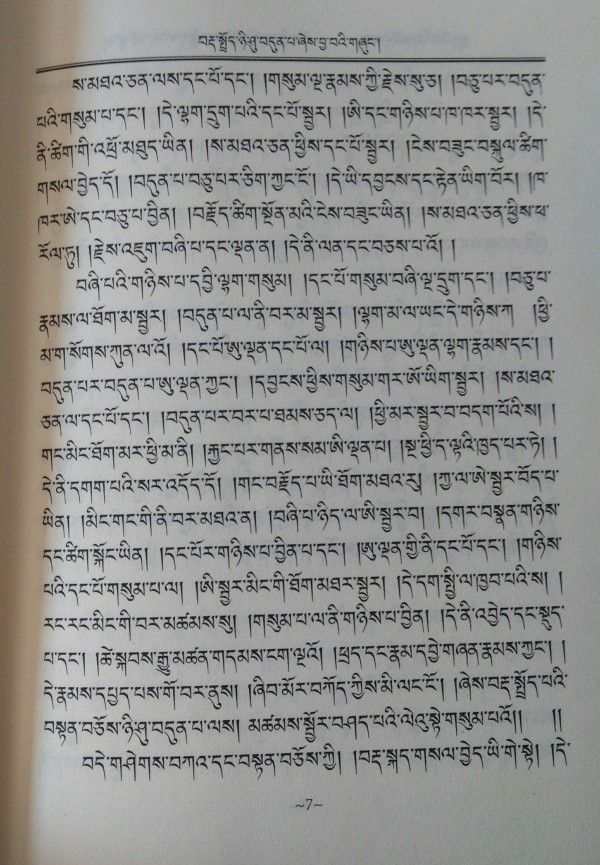 བརྡ་སྤྲོད་ཉི་ཤུ་བདུན་པ་ཞེས་བྱ་བའི་གཞུང་།
ས་མཐའ་ཅན་ལས་དང་པོ་དང་། །གསུམ་ལྔ་རྣམས་ཀྱི་རྗེས་སུ་ཅ། །བཅུ་པར་བདུན་
པའི་གསུམ་པ་དང་། །དེ་ལྷག་དྲུག་པའི་དང་པོ་སྦྱར། །ཨི་དང་གཉིས་པ་ཁ་ཁར་སྦྱར། །དེ་
ནི་ཚིག་གི་འཕྲོ་མཐུད་ཡིན། །ས་མཐའ་ཅན་ཕྱིས་དང་པོ་སྦྱར། །ངེས་བཟུང་བསྐུལ་ཚིག་
གསལ་བྱེད་དོ། །བདུན་པ་བཅུ་པར་ཅིག་ཀྱང་ངོ་། །དེ་ཡི་དབྱངས་དང་རྟེན་ཡིག་བོར། །ཁ་
ཁར་ཨེ་དང་བཅུ་པ་བྱིན། །བརྗོད་ཚིག་སྔོན་མའི་ངེས་བཟུང་ཡིན། །ས་མཐའ་ཅན་ཕྱིས་ཕ་
རོལ་ཏུ། །རྗེས་འཇུག་བཞི་པ་དང་ལྡན་ན། །དེ་ནི་ལན་དང་བཅས་པ་འོ། །
བཞི་པའི་གཉིས་པ་དབྱི་ལྷག་གསུམ། །དང་པོ་གསུམ་བཞི་ལྔ་དྲུག་དང་། །བཅུ་པ་
རྣམས་ལ་ཐོག་མ་སྦྱར། །བདུན་པ་ལ་ནི་བར་མ་སྦྱར། །ལྷག་མ་ལ་ཡང་དེ་གཉིས་ཀ །ཕྱི་
མ་ག་སོགས་ཀུན་ལ་འོ། །དང་པོ་ཨུ་ལྡན་དང་པོ་ལ། །གཉིས་པ་ཨུ་ལྡན་ལྷག་རྣམས་དང་། །
བདུན་པར་བདུན་པ་ཨུ་ལྡན་ཀྱང་། །དབྱངས་ཕྱིས་གསུམ་གར་ཨོ་ཡིག་སྦྱར། །ས་མཐའ་
ཅན་ལ་དང་པོ་དང་། །བདུན་པར་བར་པ་ཐམས་ཅད་ལ། །ཕྱི་མར་སྦྱར་བ་བདག་པོའི་ས། །
གང་མིང་ཐོག་མར་ཕྱི་མ་ནི། །རྐྱང་པར་གནས་སམ་ཨི་ལྡན་པ། །སྔ་ཕྱི་ད་ལྟའི་ཁྱད་པར་ཏེ། །
དེ་ནི་དགག་པའི་སར་འདོད་དོ། །གང་བརྗོད་པ་ཡི་ཐོག་མཐའ་རུ། །ཀྱ་ལ་ཨེ་སྦྱར་བོད་པ་
ཡིན། །མིང་གང་གི་ནི་བར་མཐའ་ན། །བཞི་པ་ཉིད་ལ་ཨི་སྦྱར་བ། །དགར་བསྣན་གཉིས་
དང་ཚིག་སྐོང་ཡིན། །དང་པོར་གཉིས་པ་བྱིན་པ་དང་། །ཨུ་ལྡན་གྱི་ནི་དང་པོ་དང་། །གཉིས་
པའི་དང་པོ་གསུམ་པ་ལ། །ཨི་སྦྱར་མིང་གི་ཐོག་མཐར་སྦྱར། །དེ་དག་སྤྱི་ལ་ཁྱབ་པའི་ས། །
རང་རང་མིང་གི་བར་མཚམས་སུ། །གསུམ་པ་ལ་ནི་གཉིས་པ་བྱིན། །དེ་ནི་འབྱེད་དང་སྡུད་
པ་དང་། །ཚེ་སྐབས་རྒྱུ་མཚན་གདམས་ངག་ལྔའོ། །ཕྲད་དང་རྣམ་དབྱེ་གཞན་རྣམས་ཀྱང་། །
དེ་རྣམས་དཔྱད་པས་གོ་བར་ནུས། །ཞིབ་མོར་བཀོད་ཀྱིས་མི་ལང་ངོ་། །ཞེས་བརྡ་སྤྲོད་པའི་
བསྟན་བཅོས་ཉི་ཤུ་བདུན་པ་ལས། མཚམས་སྦྱོར་བཤད་པའི་ལེའུ་སྟེ་གསུམ་པའོ།། །།
བདེ་གཤེགས་བཀའ་དང་བསྟན་བཅོས་ཀྱི། །བརྡ་སྐད་གསལ་བྱེད་ཡི་གེ་སྟེ། །དེ་
~7~